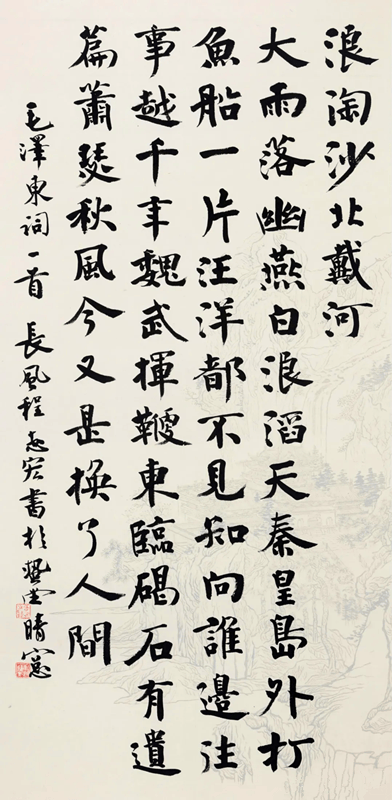 浪淘沙北戴河
大雨落幽燕白浪滔天秦皇島外打
魚船一片汪洋都不見知向誰邊往
事越千年魏武揮鞭東臨碣石有遺
篇蕭瑟秋風今又是換了人間
毛澤東詞一首 長風程志宏書於晴窓